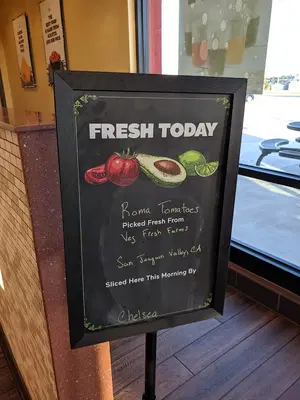 FRESH TODAY
Roma Tomatoes
Picked Fresh From
Veg Fresh Farms
San Joaquin Valley, CA
Sliced Here This Morning By
Chelsea